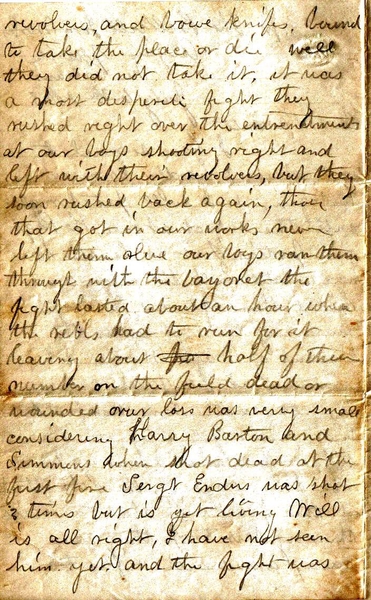 revolvers, and bowe knifes, bound
to take the place or die well
they did not take it, it was
a most desperate fight they
rushed right over the entrenchments
at our boys shooting right and
left with their revolvers, but they
soon rushed back again, those
that got in our works never
left them alive our boys ran them
through with the bayonet the
fight lasted about an hour when
the rebls had to run for it
leaving about half of their
number on the field dead or
wounded our loss was very small
considering Harry Barton and
Simmons when shot dead at the
first fire Sergt Enders was shot
3 times but is yet living Will
is all right, I have not seen
him yet and the fight was